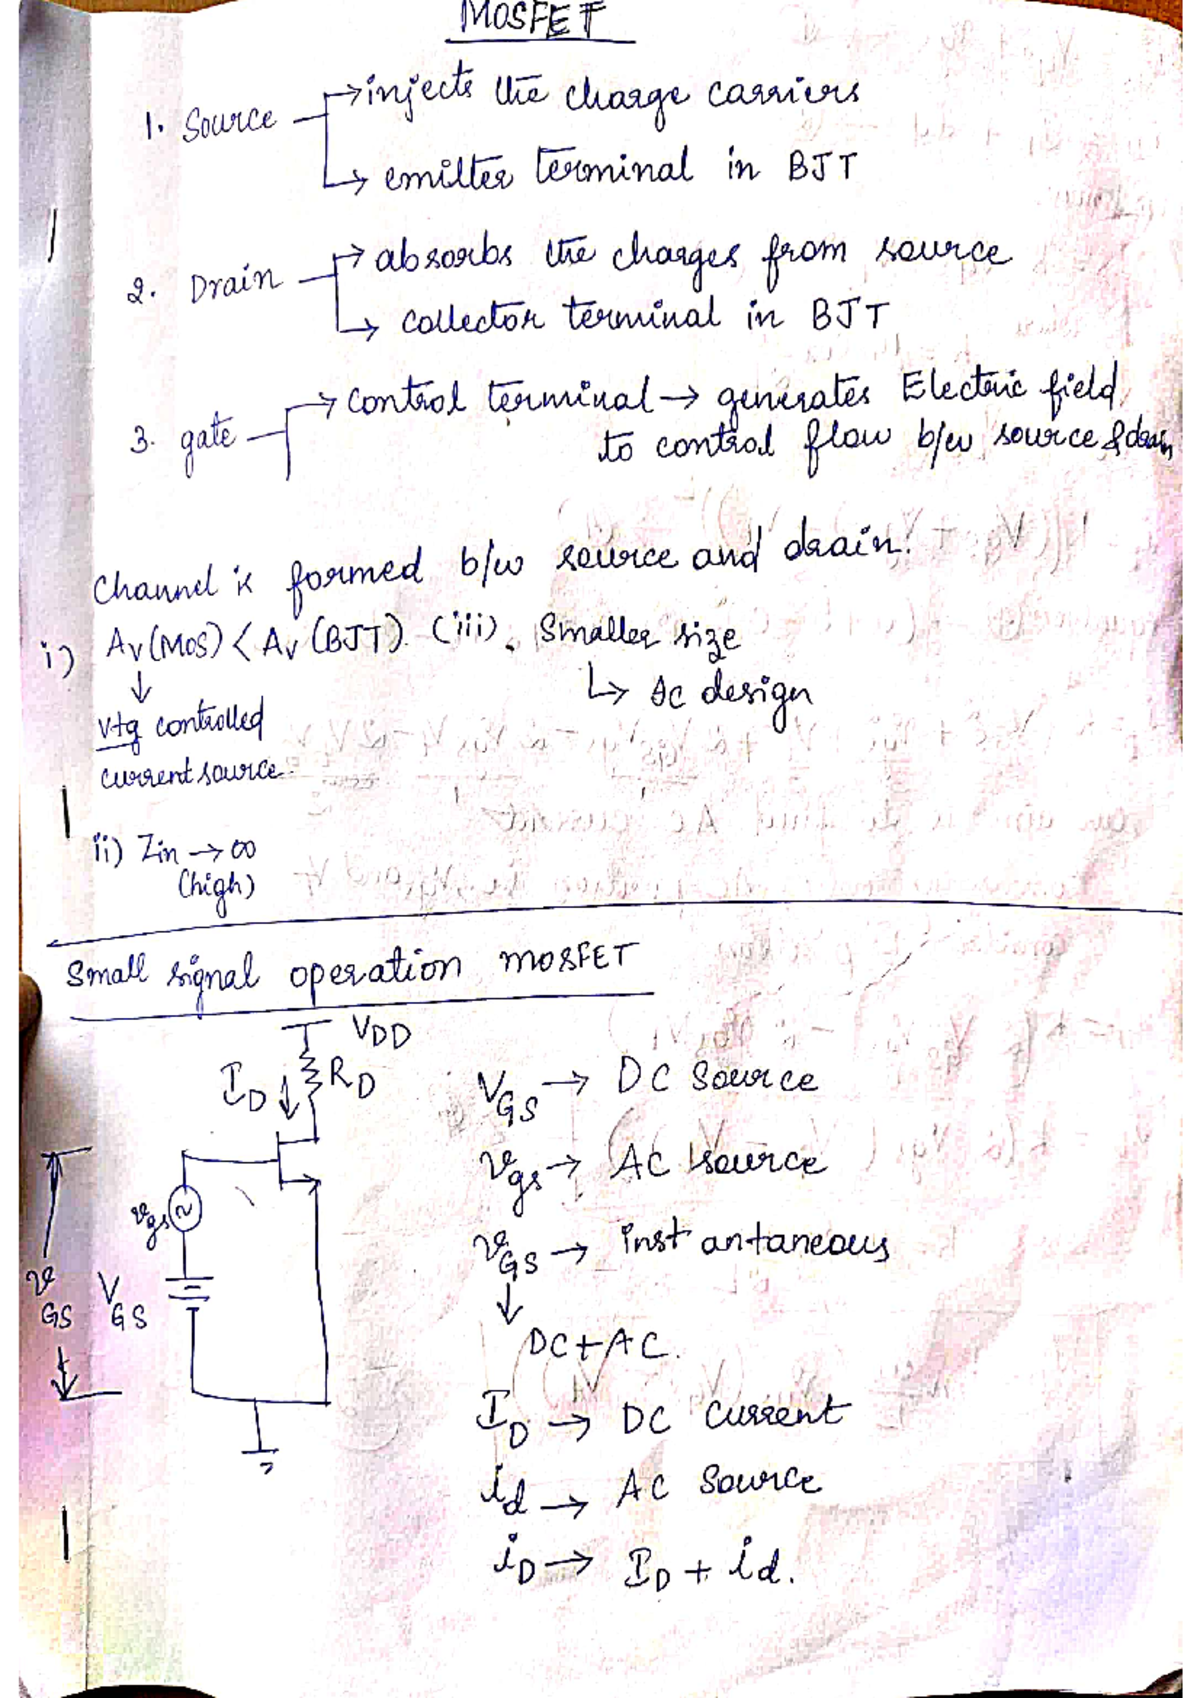 MOSFET
1. Source → injects the charge carriers
→ emitter terminal in BJT
2. Drain → absorbs the charges from source
→ collector terminal in BJT
3. gate → control terminal → generates Electric field
to control flow b/w source & drain
Channel is formed b/w source and drain.
i) Av (MOS) < Av (BJT). (iii). Smaller size
↓
↳ Ic design
vtg controlled
current source.
ii) Zin → ∞
(high)
Small signal operation MOSFET
VDD
ID ↓ RD
VGS → DC Source
vgs → AC source
vgs
vGS → inst antaneous
vGS VGS
↓
DC + AC.
ID → DC current
id → AC Source
iD → ID + id.